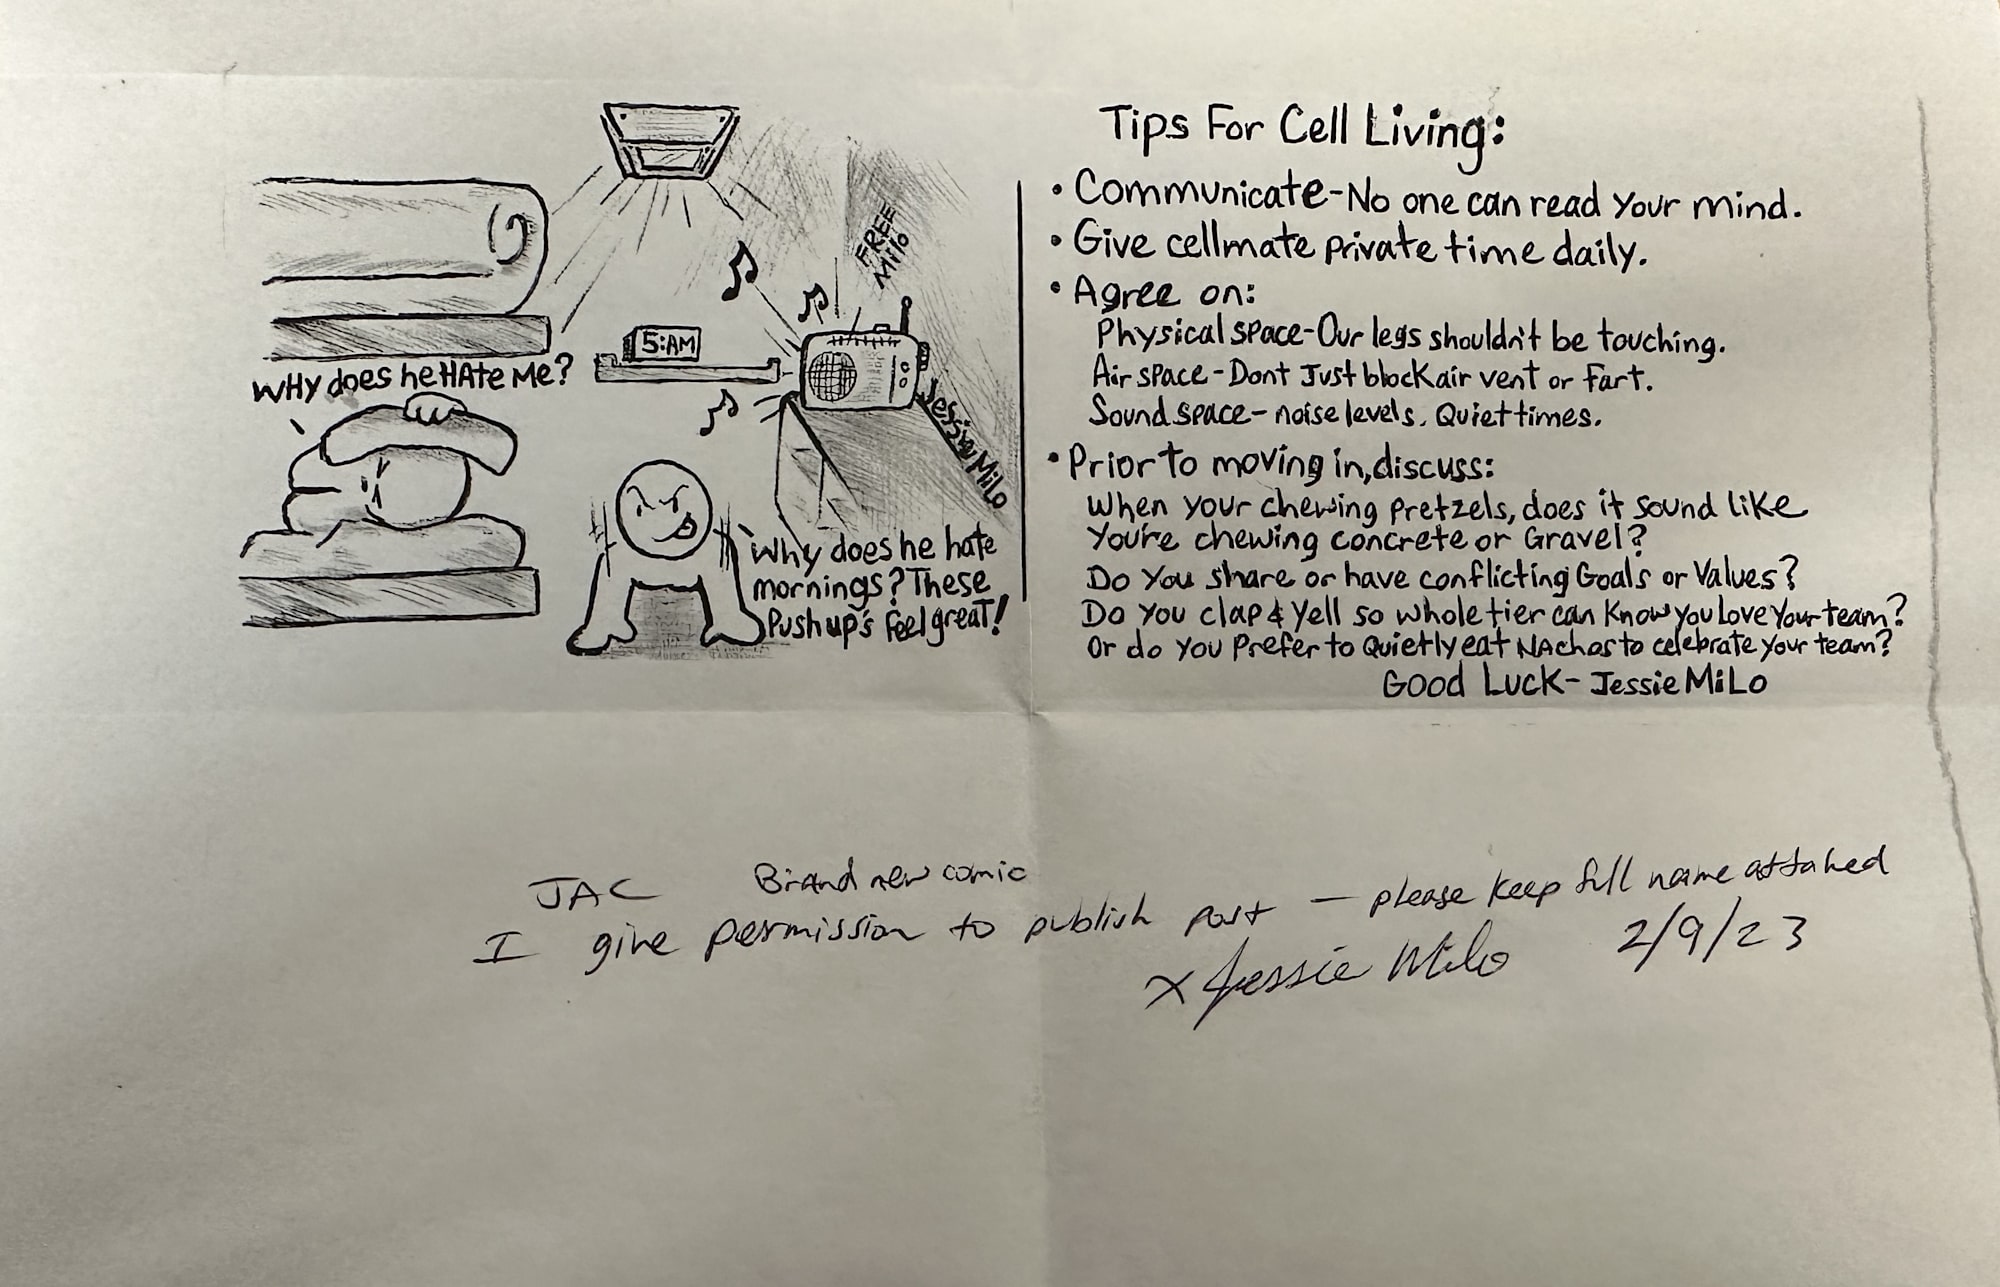 FREE
Milo
5:AM
WHY does he HAte Me?
Jessie MiLo
Why does he hate
mornings? These
Pushup's Feel great!
Tips For Cell Living:
• Communicate-No one can read your mind.
• Give cellmate private time daily.
• Agree on:
Physical space-Our legs shouldn't be touching.
Air space-Dont Just block air vent or Fart.
Sound space- noise levels. Quiet times.
• Prior to moving in, discuss:
When your chewing pretzels, does it sound like
You're chewing concrete or Gravel?
Do you share or have conflicting Goals or Values?
Do you clap & yell so whole tier can know you Love your team?
Or do you Prefer to Quietly eat NAchos to celebrate your team?
Good Luck- Jessie MiLo
JAC Brand new comic
I give permission to publish post — please keep full name attached
x Jessie Milo 2/9/23